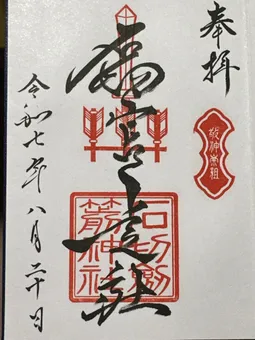 奉拝
宮上之社
石切劔
箭神社
令和七年八月二十日